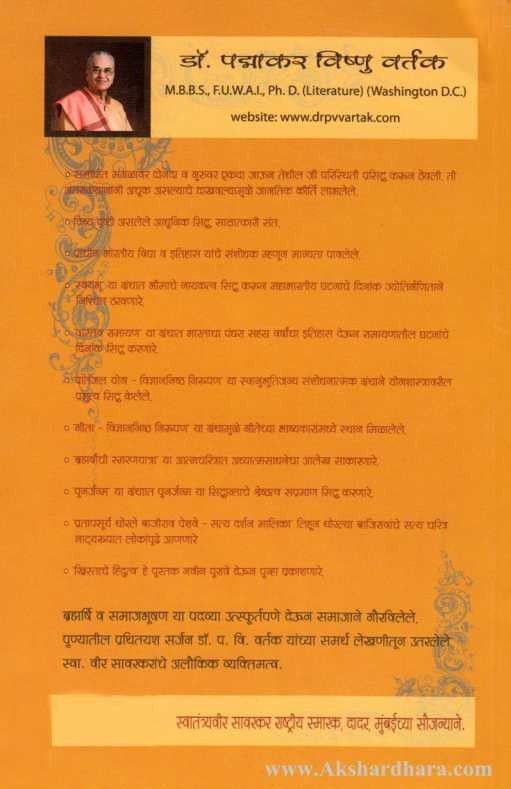 डॉ. पद्माकर विष्णु वर्तक
M.B.B.S., F.U.W.A.I., Ph. D. (Literature) (Washington D.C.)
website: www.drpvvartak.com
० समाधीत मंगळावर दोनदा व गुरुवर एकदा जाऊन तेथील जी परिस्थिती प्रसिद्ध करून ठेवली, ती
अचूक असल्याचे दाखवल्यामुळे जागतिक कीर्ति लाभलेले.
० दिव्य दृष्टी असलेले आधुनिक सिद्ध, साक्षात्कारी संत.
० प्राचीन भारतीय विद्या व इतिहास यांचे संशोधक म्हणून मान्यता पावलेले.
० 'स्वयंभू' या ग्रंथात भीमाचे नायकत्व सिद्ध करून महाभारतीय घटनांचे दिनांक ज्योतिर्गणिताने
निश्चित ठरवणारे.
० 'वास्तव रामायण' या ग्रंथात भारताचा पंधरा सहस्र वर्षांचा इतिहास देऊन रामायणातील घटनांचे
दिनांक सिद्ध करणारे.
० 'पातंजल योग - विज्ञाननिष्ठ निरूपण' या स्वानुभूतिजन्य संशोधनात्मक ग्रंथाने योगशास्त्रावरील
प्रभुत्व सिद्ध केलेले.
० 'गीता - विज्ञाननिष्ठ निरूपण' या ग्रंथामुळे गीतेच्या भाष्यकारांमध्ये स्थान मिळालेले.
० 'ब्रह्मर्षींची स्मरणयात्रा' या आत्मचरित्रात अध्यात्मसाधनेचा आलेख साकारणारे.
० 'पुनर्जन्म' या ग्रंथात पुनर्जन्म या सिद्धान्ताचे श्रेष्ठत्व सप्रमाण सिद्ध करणारे.
० 'प्रतापसूर्य थोरले बाजीराव पेशवे - सत्य दर्शन मालिका' लिहून थोरल्या बाजिरावांचे सत्य चरित्र
नाट्यरूपात लोकांपुढे आणणारे
० 'ख्रिस्ताचे हिंदुत्व' हे पुस्तक नवीन पुरावे देऊन पुन्हा प्रकाशणारे.
ब्रह्मर्षि व समाजभूषण या पदव्या उत्स्फूर्तपणे देऊन समाजाने गौरविलेले,
पुण्यातील प्रथितयश सर्जन डॉ. प. वि. वर्तक यांच्या समर्थ लेखणीतून उतरलेले
स्वा. वीर सावरकरांचे अलौकिक व्यक्तिमत्व.
स्वातंत्र्यवीर सावरकर राष्ट्रीय स्मारक, दादर, मुंबईच्या सौजन्याने.
www.Akshardhara.com